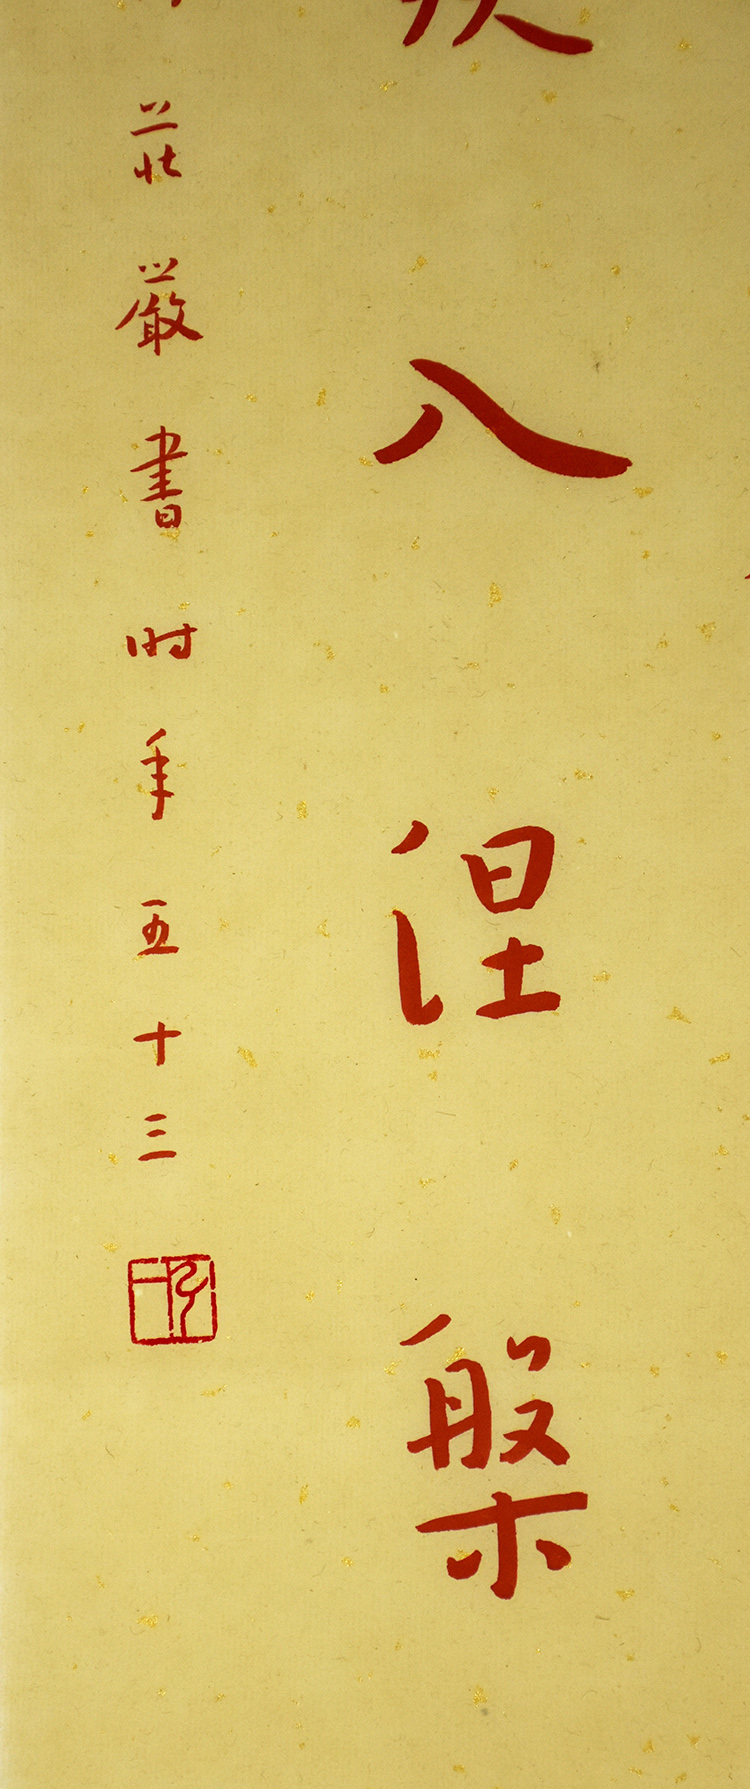 入涅槃
莊嚴書时年五十三